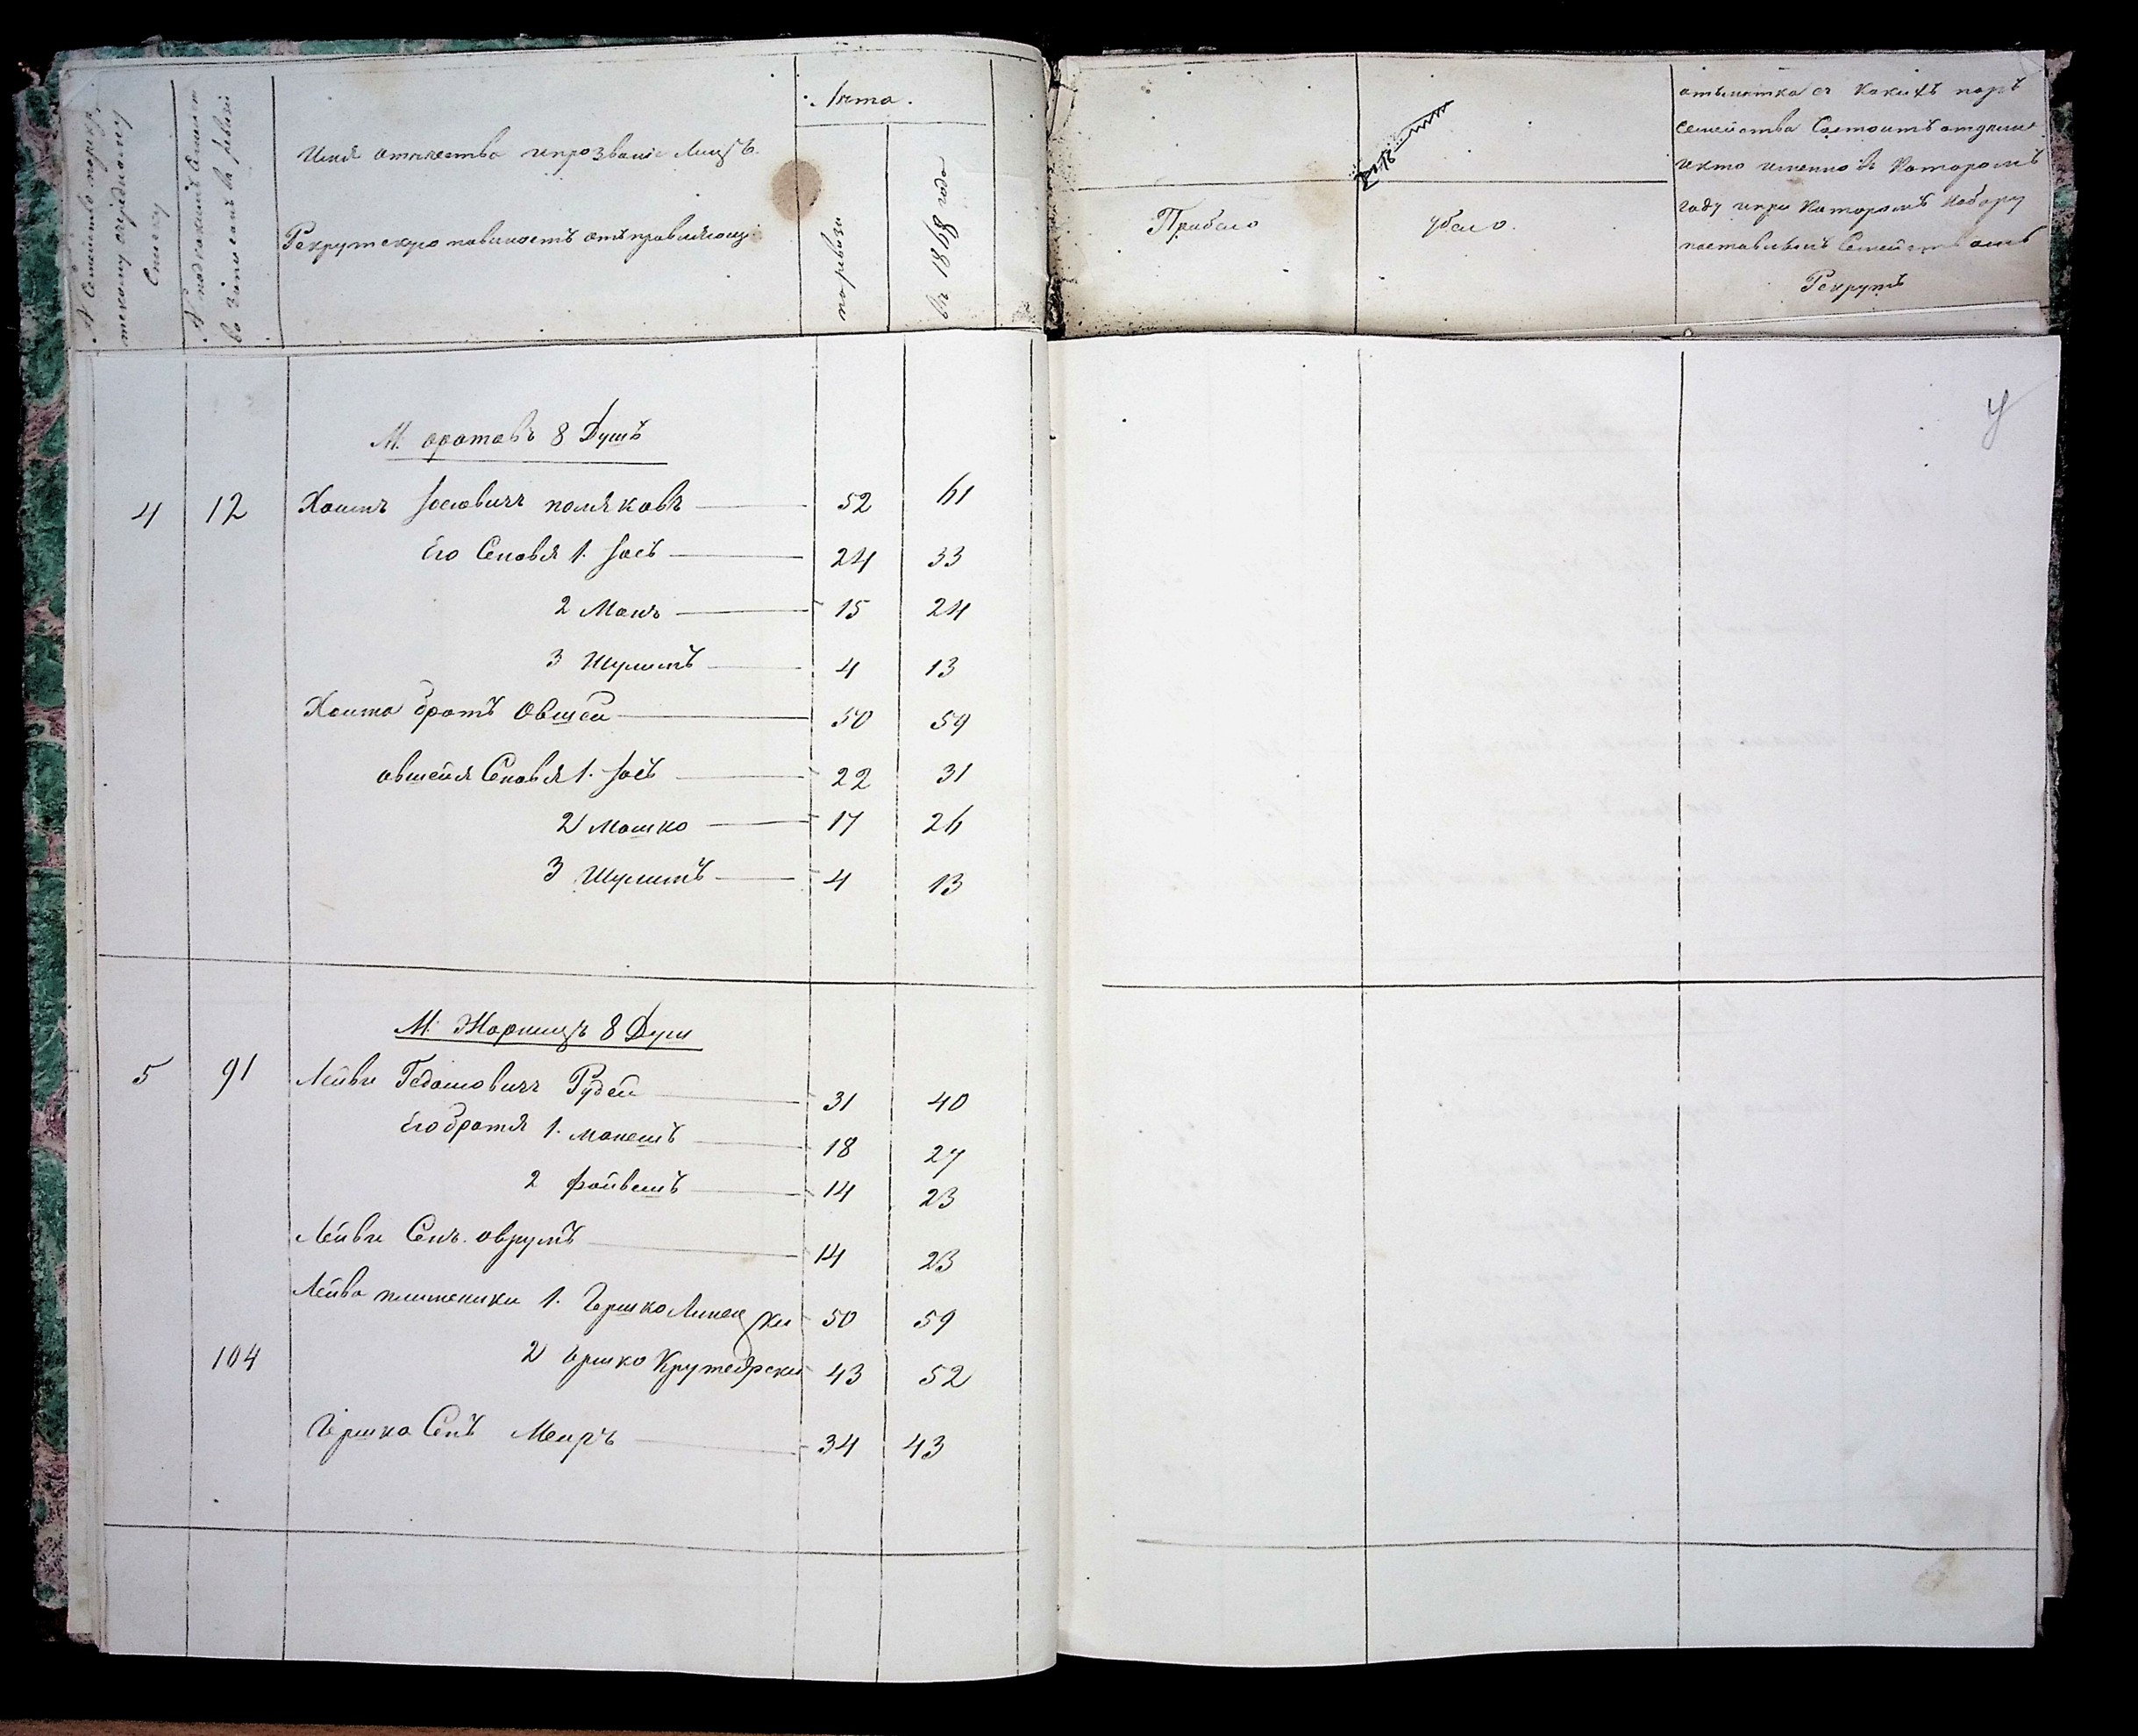 № Семейство по рекр
тскому очередному
Списку
№ под какимъ Семейст
во Записанъ в ревизи
Имя отчество и прозваніе Лицъ
Рекрутскую повиность отправляющи
Лета.
по ревизи
въ 1868 года
Прибыло
убыло.
отъметка съ Какихъ поръ
Семейства Састоитъ отдельно
и кто именно въ Каторомъ
Году и при Каторомъ Набору
поставленъ Семействамъ
Рекрутъ
У
М: оратовъ 8 Душъ
4 12 Хаимъ Іосіовичъ поляковъ 52 61
Его Сеновя 1. Іосъ 24 33
2 Манъ 15 24
3 Шулимъ 4 13
Хаима братъ Овшеи 50 59
овшейя Сеновя 1. Іосъ 22 31
2 Мошко 17 26
3 Шулимъ 4 13
М: Жорнищъ 8 Душ
5 91 Лейви Гедаліовичъ Рудеи 31 40
Его братя 1. Манешъ 18 27
2 Файвешъ 14 23
Лейви Сенъ. оврумъ 14 23
Лейва племеники 1. Гершко Линецки 50 59
104 2 Гершко Крутеярски 43 52
Гершка Сенъ Меиръ 34 43